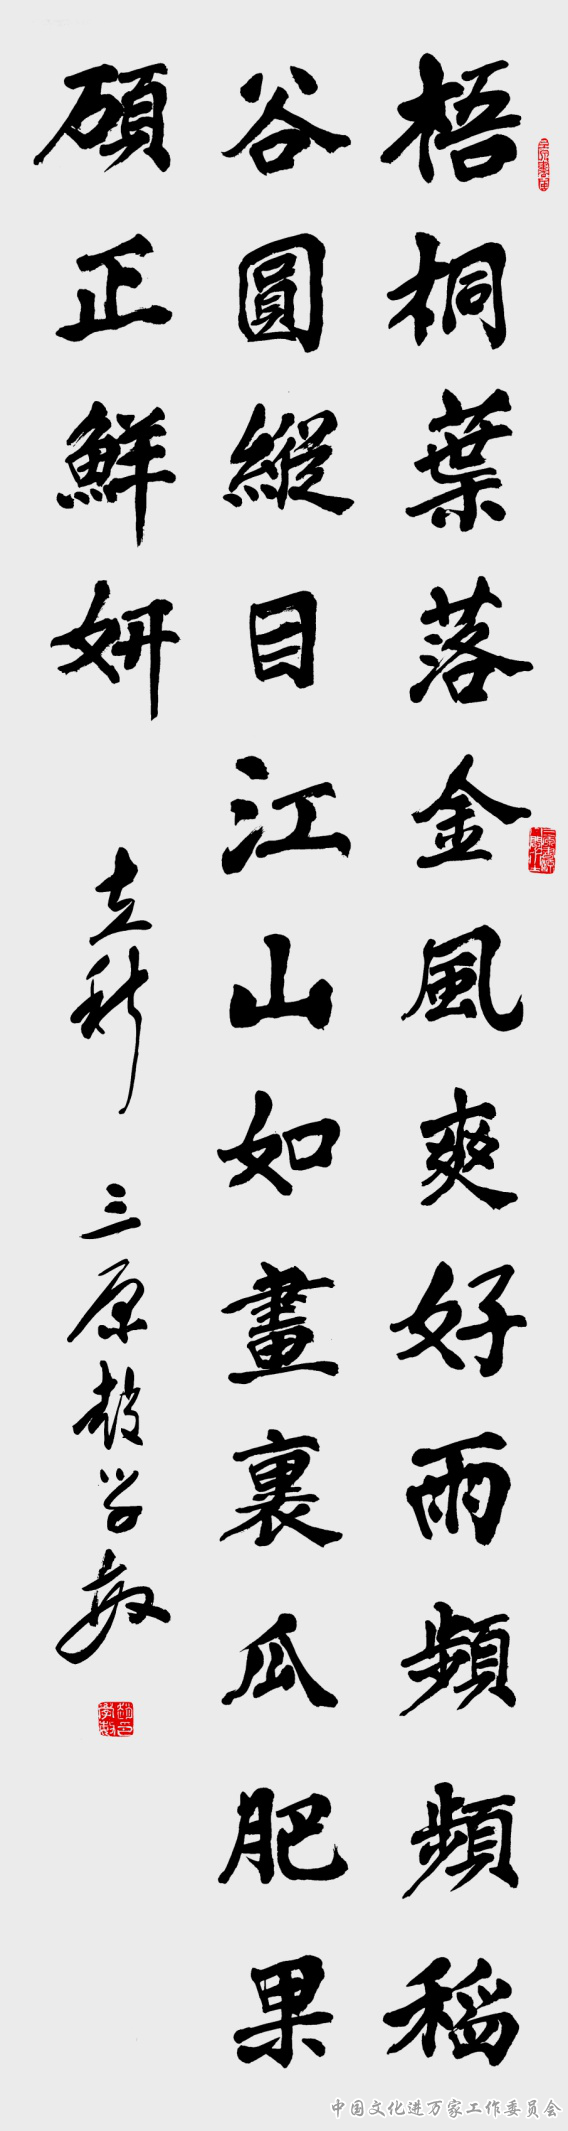 梧桐葉落金風爽好雨頻頻稻
谷圓縱目江山如畫裏瓜肥果
碩正鮮妍
立秋 三原趙学敏
中国文化进万家工作委员会